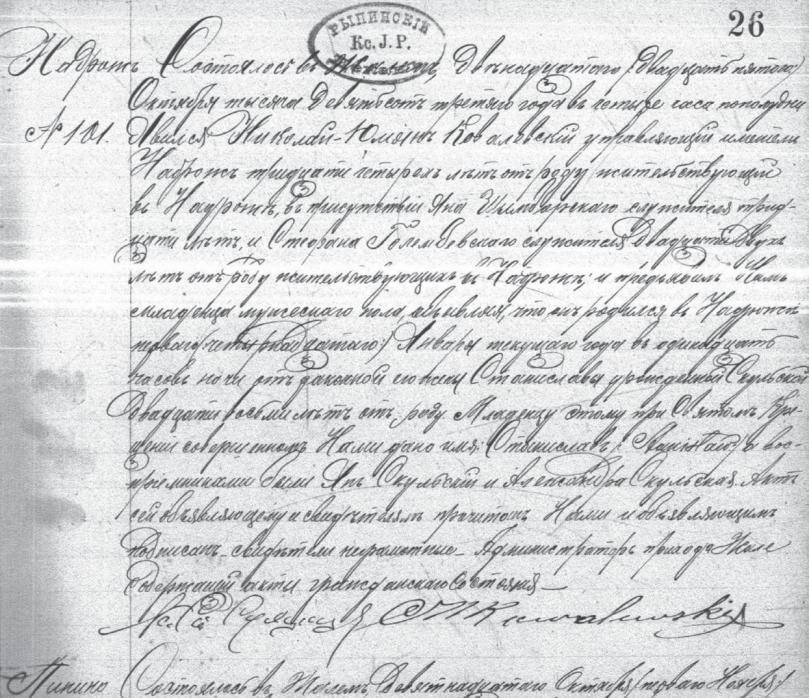 РЫПИНСКІЙ
Кс. J. P.
26
Надрожъ Состоялось въ двѣнадцатаго (двадцать пятаго)
Октября тысяча девятьсотъ третяго года въ четыре часа пополудни
№ 101. Явился Николай-Юліянъ Ковалевскій управляющій имѣнія
Надрожъ тридцати четырехъ лѣтъ отъ роду жительствующій
въ Надрожѣ, въ присутствіи Яна служителя трид-
цати лѣтъ, и Стефана Голембевскаго служителя двадцати двухъ
лѣтъ отъ роду жительствующихъ въ Надрожѣ; и предъявилъ Намъ
младенца мужескаго пола, объявляя, что онъ родился въ Надрожѣ
Января текущаго года въ одинадцать
часовъ ночи отъ законной его жены Станиславы урожденной Скульской
двадцати восьми лѣтъ отъ роду Младенцу этому при Святомъ Кре-
щеніи совершенномъ Нами дано имя: Станиславъ, а вос-
приемниками были Янъ Скульскій и Александра Скульская. Актъ
сей объявляющему и свидѣтелямъ прочитанъ Нами и объявляющимъ
подписанъ, свидѣтели неграмотные. Администраторъ прихода Жале
Содержащій акты гражданскаго состоянія
Kowalewski
Пинино Состоялось въ Жаломъ девятнадцатаго Октября (перваго Ноября)